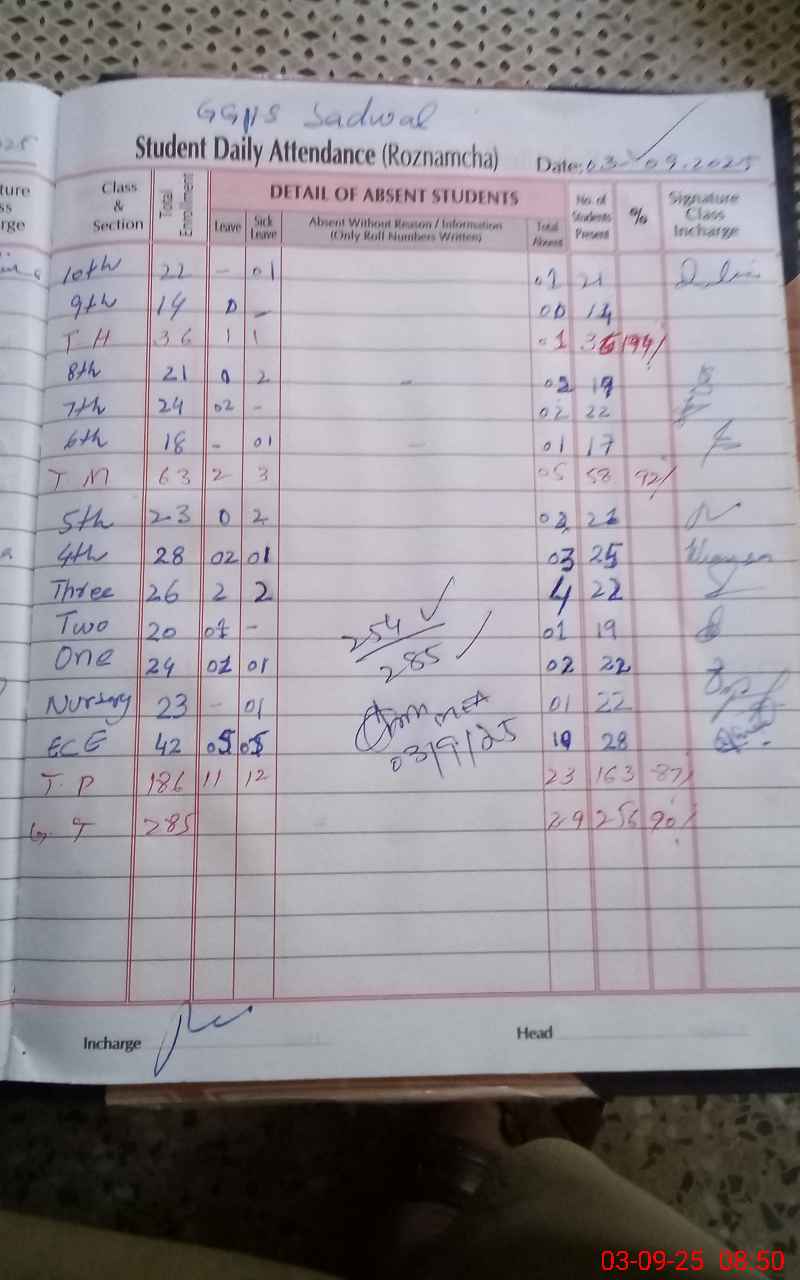 025
GGHS Sadwal
Student Daily Attendance (Roznamcha) Date: 03-09.2025
ture
ss
rge
Class & Section Total Enrollment DETAIL OF ABSENT STUDENTS No. of Students Present % Signature Class Incharge
Leave Sick Leave Absent Without Reason / Information (Only Roll Numbers Written) Total Absent
10th 22 - 01 01 21
9th 14 0 - 00 14
T H 36 1 1 01 35 99%
8th 21 0 2 - 02 19
7th 24 02 - 02 22
6th 18 - 01 - 01 17
T M 63 2 3 05 58 92%
5th 23 0 2 02 21
4th 28 02 01 03 25
Three 26 2 2 4 22
Two 20 01 - 01 19
One 24 01 01 02 22
254
285
Nursery 23 - 01 01 22
ECE 42 05 05 10 28
03/9/25
T.P 186 11 12 23 163 87%
G T 285 29 256 90%
Incharge
Head
03-09-25 08:50